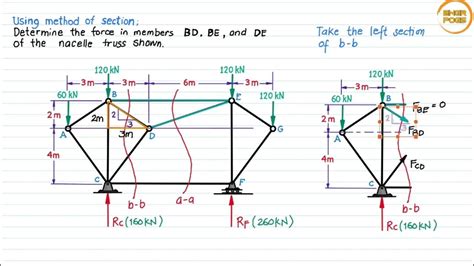 Using method of section.
Determine the force in members BD, BE, and DE
of the nacelle truss shown.
ENGR
POGS
Take the left section
of b-b
120 kN
120 kN
3m
3m
6m
3m
60 kN
B
E
120 kN
2m
2m
2
3
3m
A
D
G
4m
C
F
b-b
a-a
Rc(160kN)
RF(260kN)
120 kN
3m
60 kN
B
FBE = 0
2m
2
3
A
FBD
4m
FCD
C
b-b
Rc(160kN)